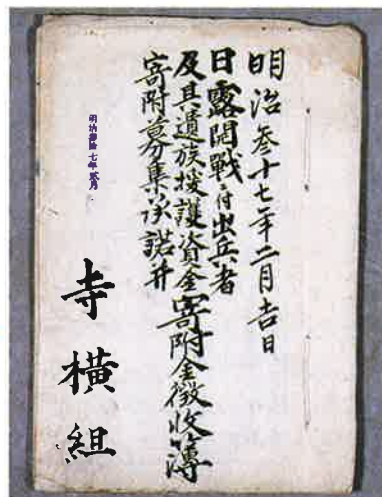 明治参十七年二月吉日
日露開戦ニ付出兵者
及其遺族援護資金寄附金徴收簿
寄附募集承諾并
明治参拾七年貮月
寺横組